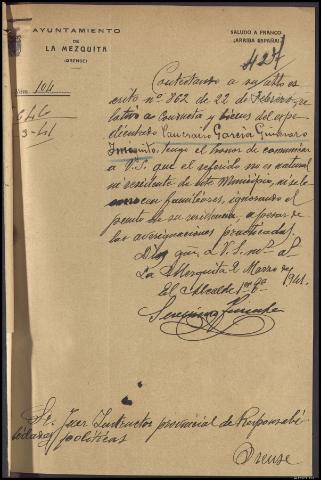 AYUNTAMIENTO
DE
LA MEZQUITA
(ORENSE)
SALUDO A FRANCO
¡ARRIBA ESPAÑA!
427
Núm. 104
646
3-41
Contestando a su atto es-
crito nº 862 de 22 de Febrero re-
lativo a conducta y bienes del expe-
dientado Laureano García
tengo el honor de comunicar
a V.S. que el referido no es natural
ni residente de este Municipio, ni se le
conocen familiares, ignorando el
punto de su residencia a pesar de
las averiguaciones practicadas.
Dios gue a V.S. ms. as.
La Mezquita 2 Marzo de
1941.
El Alcalde
Sr. Juez Instructor provincial de Responsabi-
lidades políticas
Orense